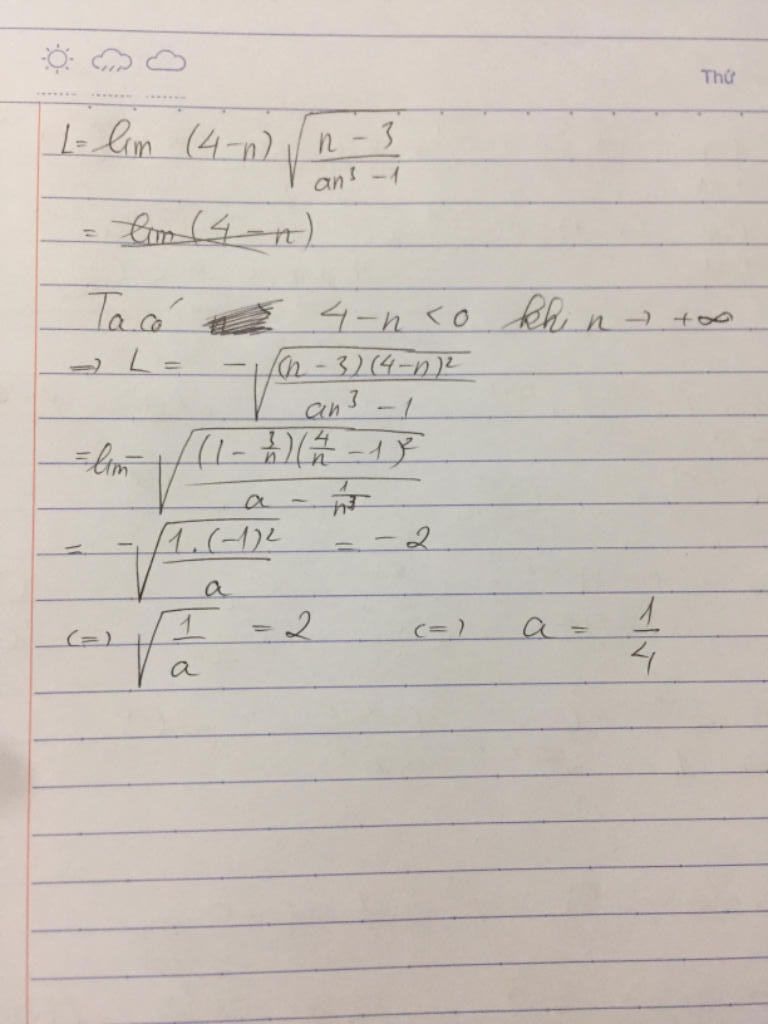 Thứ
L = lim (4-n) √((n-3)/(an³-1))
= lim (4-n)
Ta có 4-n < 0 khi n → +∞
⇒ L = -√((n-3)(4-n)²/(an³-1))
= lim -√((1-3/n)(4/n-1)²/(a-1/n³))
= -√(1.(-1)²/a) = -2
(=) √(1/a) = 2 (=) a = 1/4